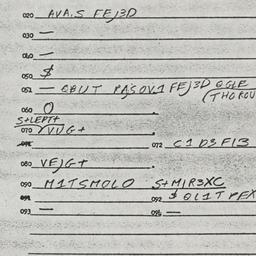 020 AVA.S FEJ3D
030 —
040 —
050 $
051 — OBUT PASOV1 FEJ3D OGLE
(THOROU
060 O
S+LEPT+
070 YVUG+
072 C1D3F13
080 VEJG+
090 M1TSMOLO S+MIR3XC
092 $ OL1T PEX
093 —
094 —